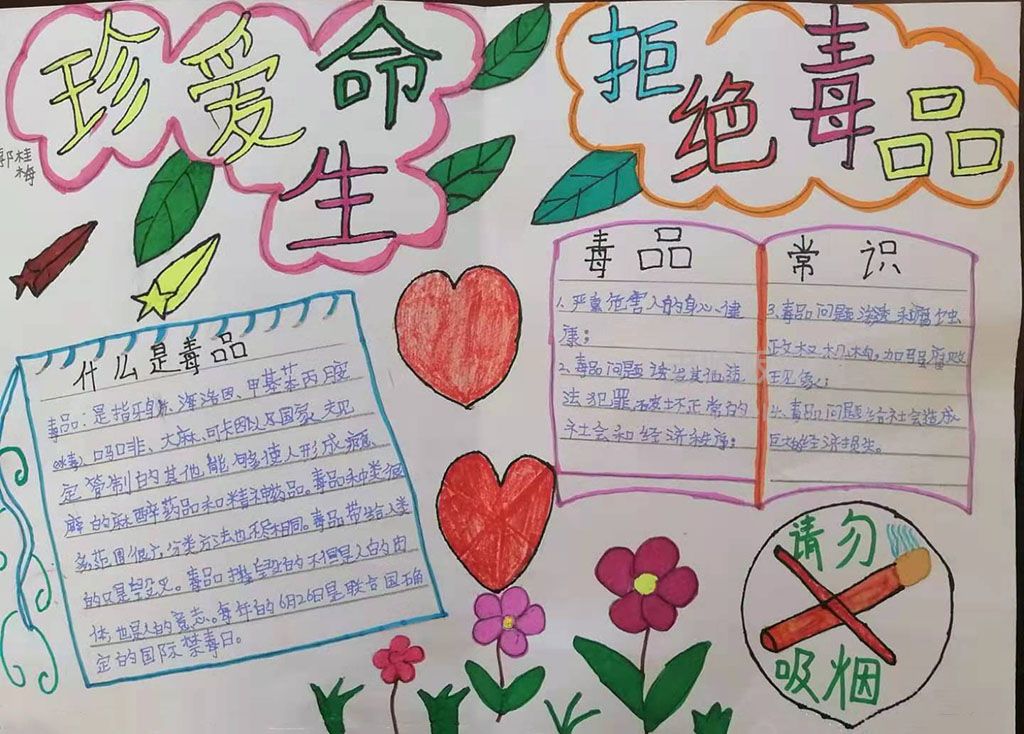 珍爱生命
拒绝毒品
郭桂梅
什么是毒品
毒品：是指鸦片、海洛因、甲基苯丙胺
(冰毒)、吗啡、大麻、可卡因以及国家
定管制的其他能够使人形成瘾
癖的麻醉药品和精神药品。毒品种类
分类方法也不尽相同。毒品带给人类
的只是毁灭。毒品摧毁的不但是人的肉
体也是人的意志。每年的6月26日是联合国确
定的国际禁毒日。
毒品
1、严重危害人的身心健
康；
2、毒品问题诱发其他违
法犯罪，破坏正常的
社会和经济秩序；
常识
3、毒品问题渗透和腐蚀
政权机构，加剧腐败
现象；
毒品问题给社会造成
巨大经济损失。
请勿
吸烟